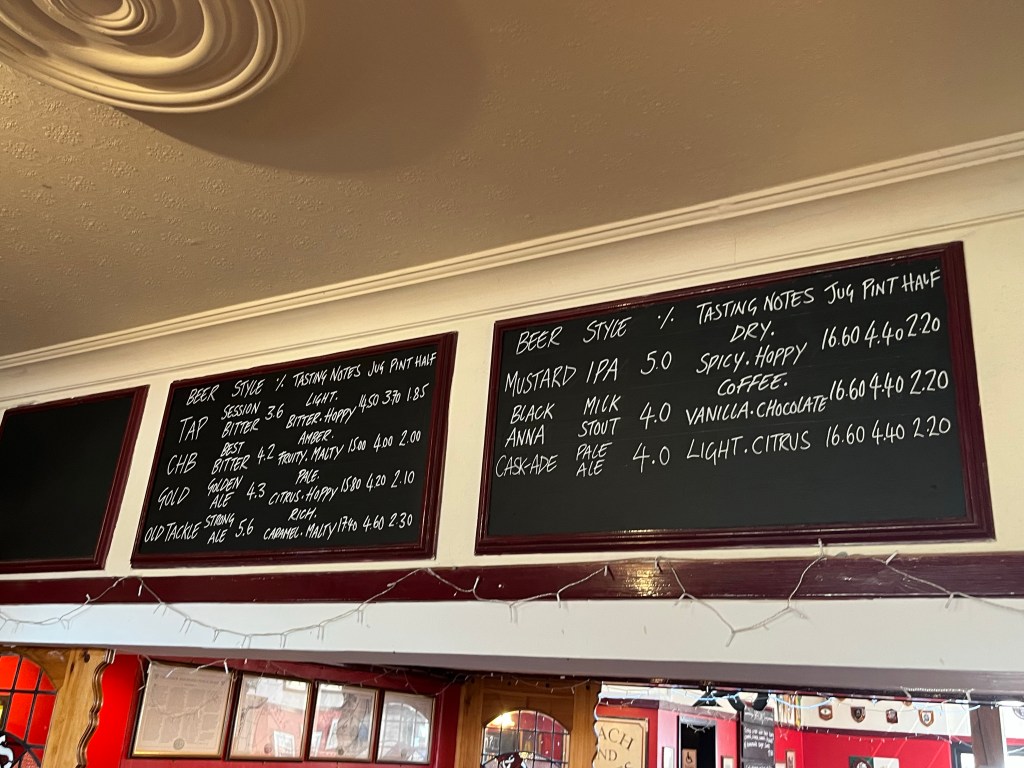 BEER STYLE % TASTING NOTES JUG PINT HALF
TAP SESSION BITTER 3.6 LIGHT. BITTER. HOPPY 14.50 3.70 1.85
CHB BEST BITTER 4.2 AMBER. FRUITY. MALTY 15.00 4.00 2.00
GOLD GOLDEN ALE 4.3 PALE. CITRUS. HOPPY 15.80 4.20 2.10
OLD TACKLE STRONG ALE 5.6 RICH. CARAMEL. MALTY 17.40 4.60 2.30
BEER STYLE % TASTING NOTES JUG PINT HALF
MUSTARD IPA 5.0 DRY. SPICY. HOPPY 16.60 4.40 2.20
BLACK ANNA MILK STOUT 4.0 COFFEE. VANILLA. CHOCOLATE 16.60 4.40 2.20
CASK-ADE PALE ALE 4.0 LIGHT. CITRUS 16.60 4.40 2.20